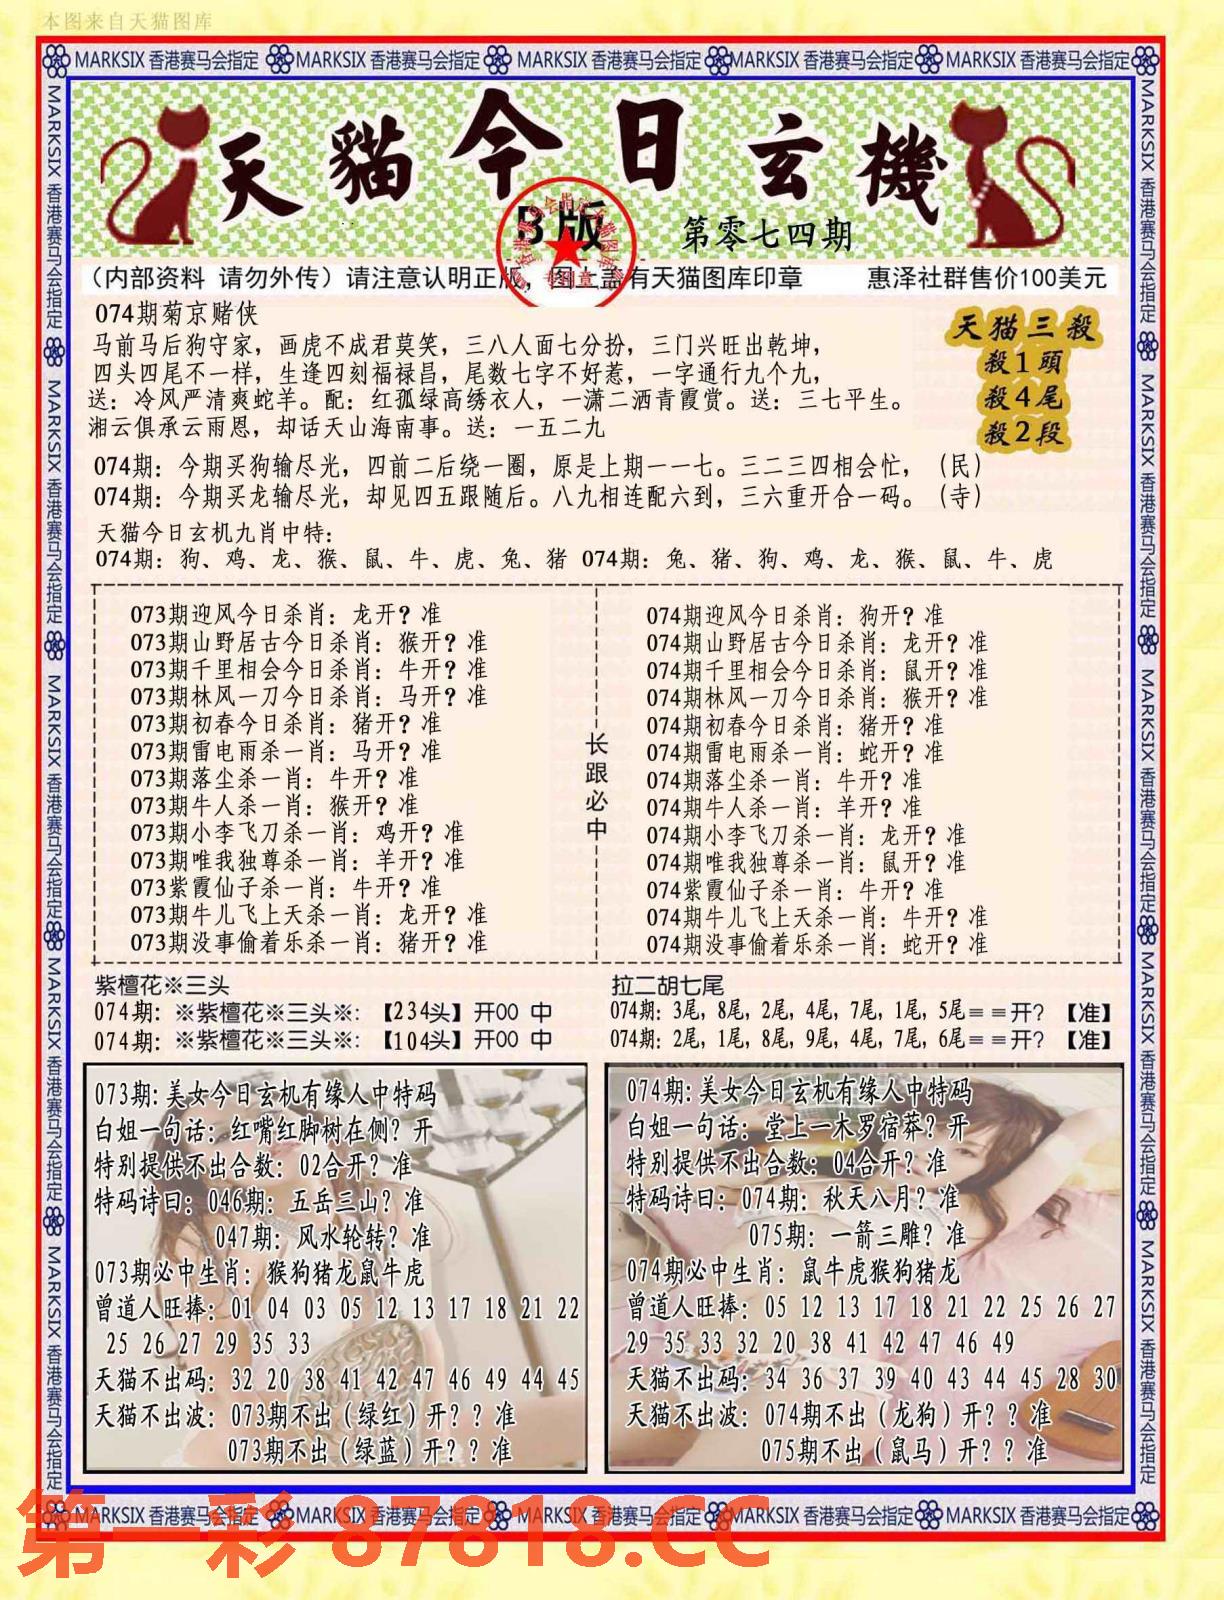 本图来自天猫图库
MARKSIX 香港赛马会指定 MARKSIX 香港赛马会指定 MARKSIX 香港赛马会指定 MARKSIX 香港赛马会指定 MARKSIX 香港赛马会指定
天貓今日玄機
B版
第零七四期
(内部资料 请勿外传) 请注意认明正版，图上盖有天猫图库印章 惠泽社群售价100美元
074期菊京赌侠
马前马后狗守家，画虎不成君莫笑，三八人面七分扮，三门兴旺出乾坤，
四头四尾不一样，生逢四刻福禄昌，尾数七字不好惹，一字通行九个九，
送：冷风严清爽蛇羊。配：红孤绿高绣衣人，一潇二洒青霞赏。送：三七平生。
湘云俱承云雨恩，却话天山海南事。送：一五二九
天猫三殺
殺1頭
殺4尾
殺2段
074期：今期买狗输尽光，四前二后绕一圈，原是上期一一七。三二三四相会忙，（民）
074期：今期买龙输尽光，却见四五跟随后。八九相连配六到，三六重开合一码。（寺）
天猫今日玄机九肖中特：
074期：狗、鸡、龙、猴、鼠、牛、虎、兔、猪 074期：兔、猪、狗、鸡、龙、猴、鼠、牛、虎
073期迎风今日杀肖：龙开？准
073期山野居古今日杀肖：猴开？准
073期千里相会今日杀肖：牛开？准
073期林风一刀今日杀肖：马开？准
073期初春今日杀肖：猪开？准
073期雷电雨杀一肖：马开？准
073期落尘杀一肖：牛开？准
073期牛人杀一肖：猴开？准
073期小李飞刀杀一肖：鸡开？准
073期唯我独尊杀一肖：羊开？准
073紫霞仙子杀一肖：牛开？准
073期牛儿飞上天杀一肖：龙开？准
073期没事偷着乐杀一肖：猪开？准
长跟必中
074期迎风今日杀肖：狗开？准
074期山野居古今日杀肖：龙开？准
074期千里相会今日杀肖：鼠开？准
074期林风一刀今日杀肖：猴开？准
074期初春今日杀肖：猪开？准
074期雷电雨杀一肖：蛇开？准
074期落尘杀一肖：牛开？准
074期牛人杀一肖：羊开？准
074期小李飞刀杀一肖：龙开？准
074期唯我独尊杀一肖：鼠开？准
074紫霞仙子杀一肖：牛开？准
074期牛儿飞上天杀一肖：牛开？准
074期没事偷着乐杀一肖：蛇开？准
紫檀花※三头
074期：※紫檀花※三头※：【234头】开00 中
074期：※紫檀花※三头※：【104头】开00 中
拉二胡七尾
074期：3尾，8尾，2尾，4尾，7尾，1尾，5尾＝＝开？【准】
074期：2尾，1尾，8尾，9尾，4尾，7尾，6尾＝＝开？【准】
073期：美女今日玄机有缘人中特码
白姐一句话：红嘴红脚树在侧？开
特别提供不出合数：02合开？准
特码诗曰：046期：五岳三山？准
047期：风水轮转？准
073期必中生肖：猴狗猪龙鼠牛虎
曾道人旺捧：01 04 03 05 12 13 17 18 21 22
25 26 27 29 35 33
天猫不出码：32 20 38 41 42 47 46 49 44 45
天猫不出波：073期不出（绿红）开？？准
073期不出（绿蓝）开？？准
074期：美女今日玄机有缘人中特码
白姐一句话：堂上一木罗宿莽？开
特别提供不出合数：04合开？准
特码诗曰：074期：秋天八月？准
075期：一箭三雕？准
074期必中生肖：鼠牛虎猴狗猪龙
曾道人旺捧：05 12 13 17 18 21 22 25 26 27
29 35 33 32 20 38 41 42 47 46 49
天猫不出码：34 36 37 39 40 43 44 45 28 30
天猫不出波：074期不出（龙狗）开？？准
075期不出（鼠马）开？？准
MARKSIX 香港赛马会指定 MARKSIX 香港赛马会指定 MARKSIX 香港赛马会指定 MARKSIX 香港赛马会指定 MARKSIX 香港赛马会指定
MARKSIX 香港赛马会指定 MARKSIX 香港赛马会指定 MARKSIX 香港赛马会指定 MARKSIX 香港赛马会指定 MARKSIX 香港赛马会指定
MARKSIX 香港赛马会指定 MARKSIX 香港赛马会指定 MARKSIX 香港赛马会指定 MARKSIX 香港赛马会指定 MARKSIX 香港赛马会指定
第一彩 87818.CC